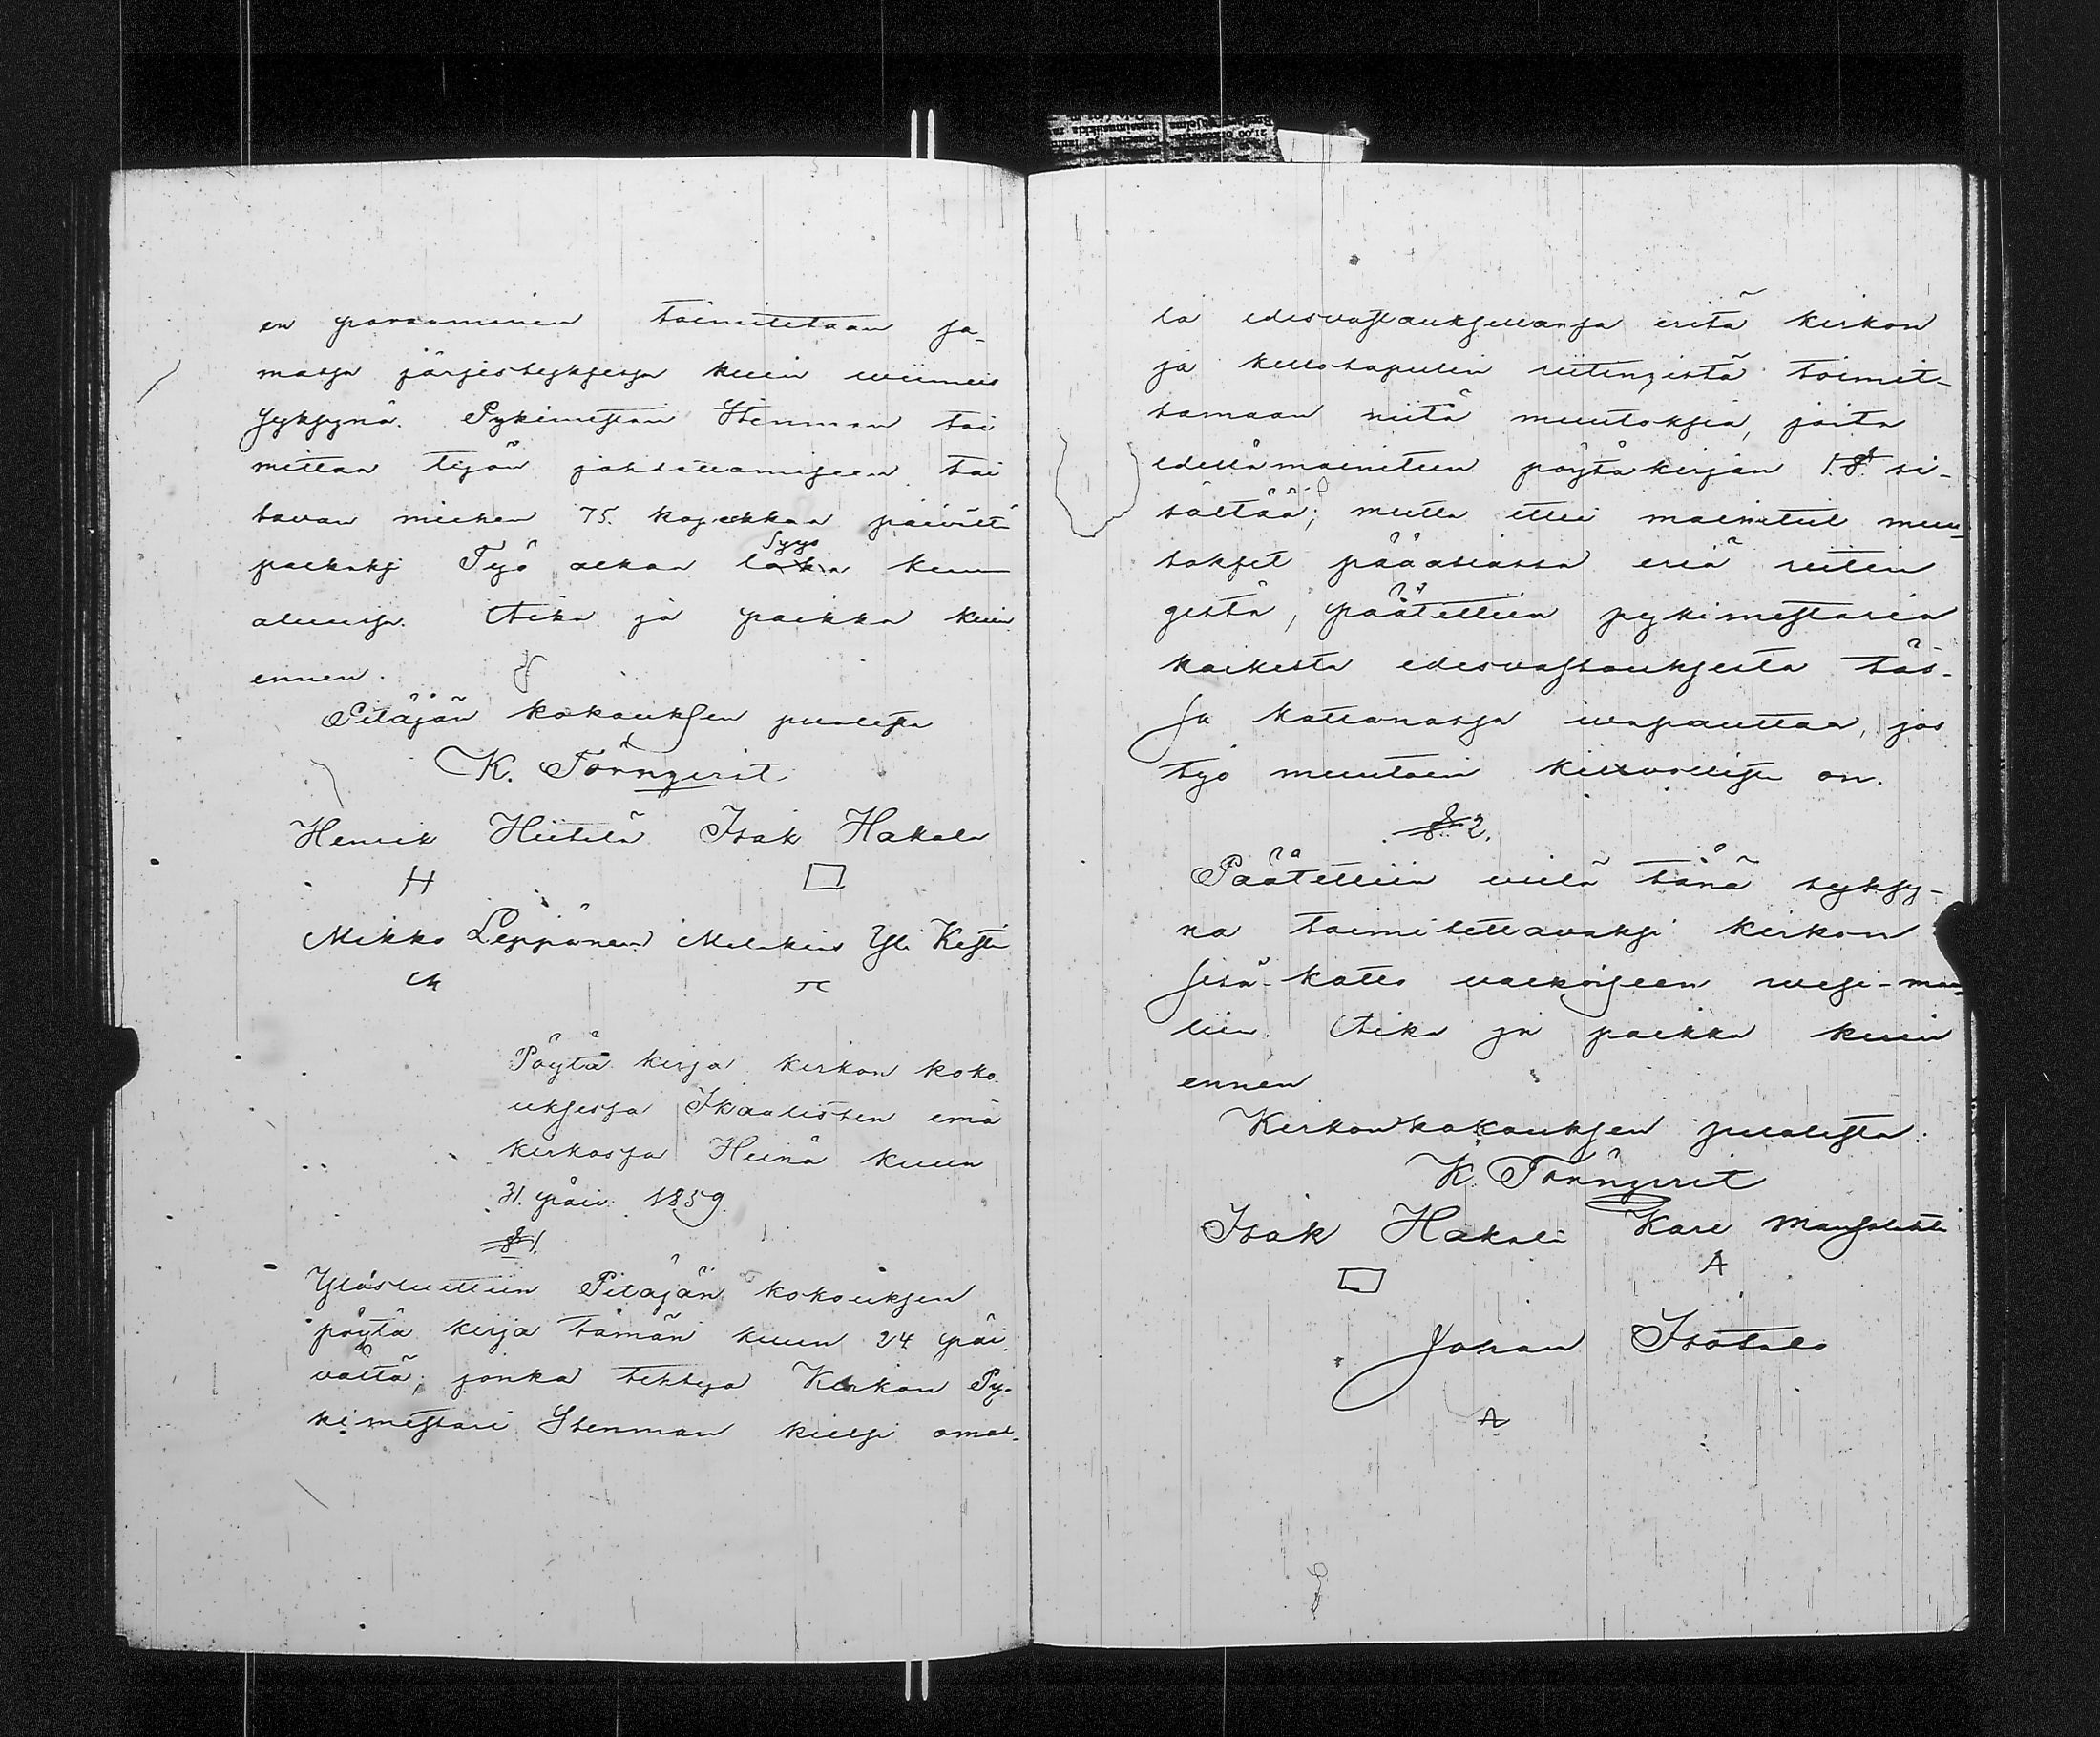 en paraaminen toimitetaan sa-
massa järjestyksessä kuin wiimeis
syksynä. Pykimestari Stenman toi
mittaa työn johdattamiseen tai
tavan miehen 75. kopekkaa päivält
palkaksi Työ alkaa loka Syys kuun
alussa. Aika ja paikka kuin
ennen.
Pitäjän kokouksen puolesta
K. Törnqvist
Henrik Hiitelä Isak Hakala
H □
Mikko Leppänen Malakias Yli Kesti
M
Pöytä kirja kirkon koko
uksessa Ikaalisten emä
kirkossa Heinä kuun
31. päiv. 1859.
§ 1.
Ylösluettiin Pitäjän kokouksen
pöytä kirja tämän kuun 24 päi
vältä; jonka tehtyä Kirkon Py-
kimestari Stenman kielsi omal-
la edesvastauksellansa eritä kirkon
ja kellotapulin riitingistä toimit-
tamaan niitä muutoksia, joita
edellämainitun pöytäkirjan 1. § si-
sältää; mutta ettei mainitut muu-
tokset pääasiassa eriä riitin
gistä, päätettiin pykimestaria
kaikesta edesvastauksesta täs-
sä kattannassa wapauttaa, jos
työ muutoin kelwollista on.
§ 2.
Päätettiin vielä tänä syksy-
nä toimitettavaksi kirkon
sisä-katto valkoiseen wesi-maa-
liin. Aika ja paikka kuin
ennen
Kirkonkokouksen puolesta.
K. Törnqvist
Isak Hakala Karl Mansolahti
□ A
Johan Isotalo
A